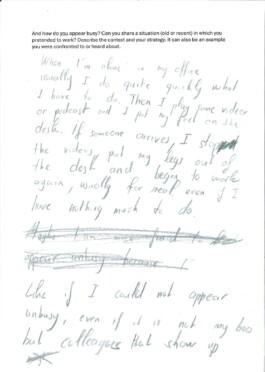 And how do you appear busy? Can you share a situation (old or recent) in which you
pretended to work? Describe the context and your strategy. It can also be an example
you were confronted to or heard about.
When I'm alone in my office
usually I do quite quickly what
I have to do. Then I play some videos
or podcast and I put my feet on the
desk. If someone arrives, I stop
the videos, put my legs out of
the desk and begin to work
again, usually for real even if I
have nothing much to do.
appear unbusy because I
Like if I could not appear
unbusy, even if it is not my boss
but colleagues that show up